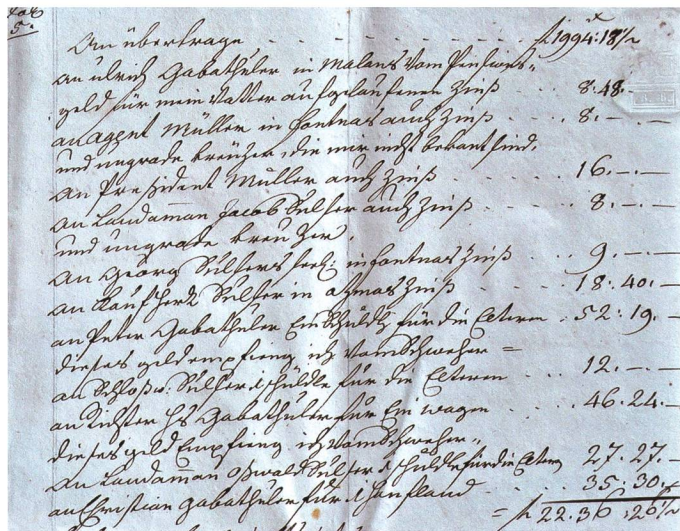 fol
5.
An übertrage f 1994:18½ x
an ulrich Gabathuler in Malans Vom Pensions-
geld für mein Vatter aufgelaufenen Zinß 8.48.-
an agent Müller in fontnas auch Zinß 8.-
und ungrade kreuzer, die mir nicht bekant sind.
an President Müller auch Zinß 16.-.-
an Landaman Jacob Sulser auch Zinß 8.-.-
und ungrade kreuzer.
an Georg Sulsers in fontnas Zinß 9.-.-
an Kaufher Sulser in azmos Zinß 18.40.-
an Peter Gabathuler Ein Schuldt für die Elteren 52.19.-
dieses geld empfieng ich Vom Schweher=
an Schloß Sulser schuldt für die Elteren 12.-.-
an Richter Hs Gabathuler für Ein wagen 46.24.-
dieses geld Empfieng ich Vom Schweher,,
an Landaman oswald Sulser schuldt für die Elteren 27.27.-
an Christian Gabathuler für hanfland 35.30.-
= f 22.36.26½